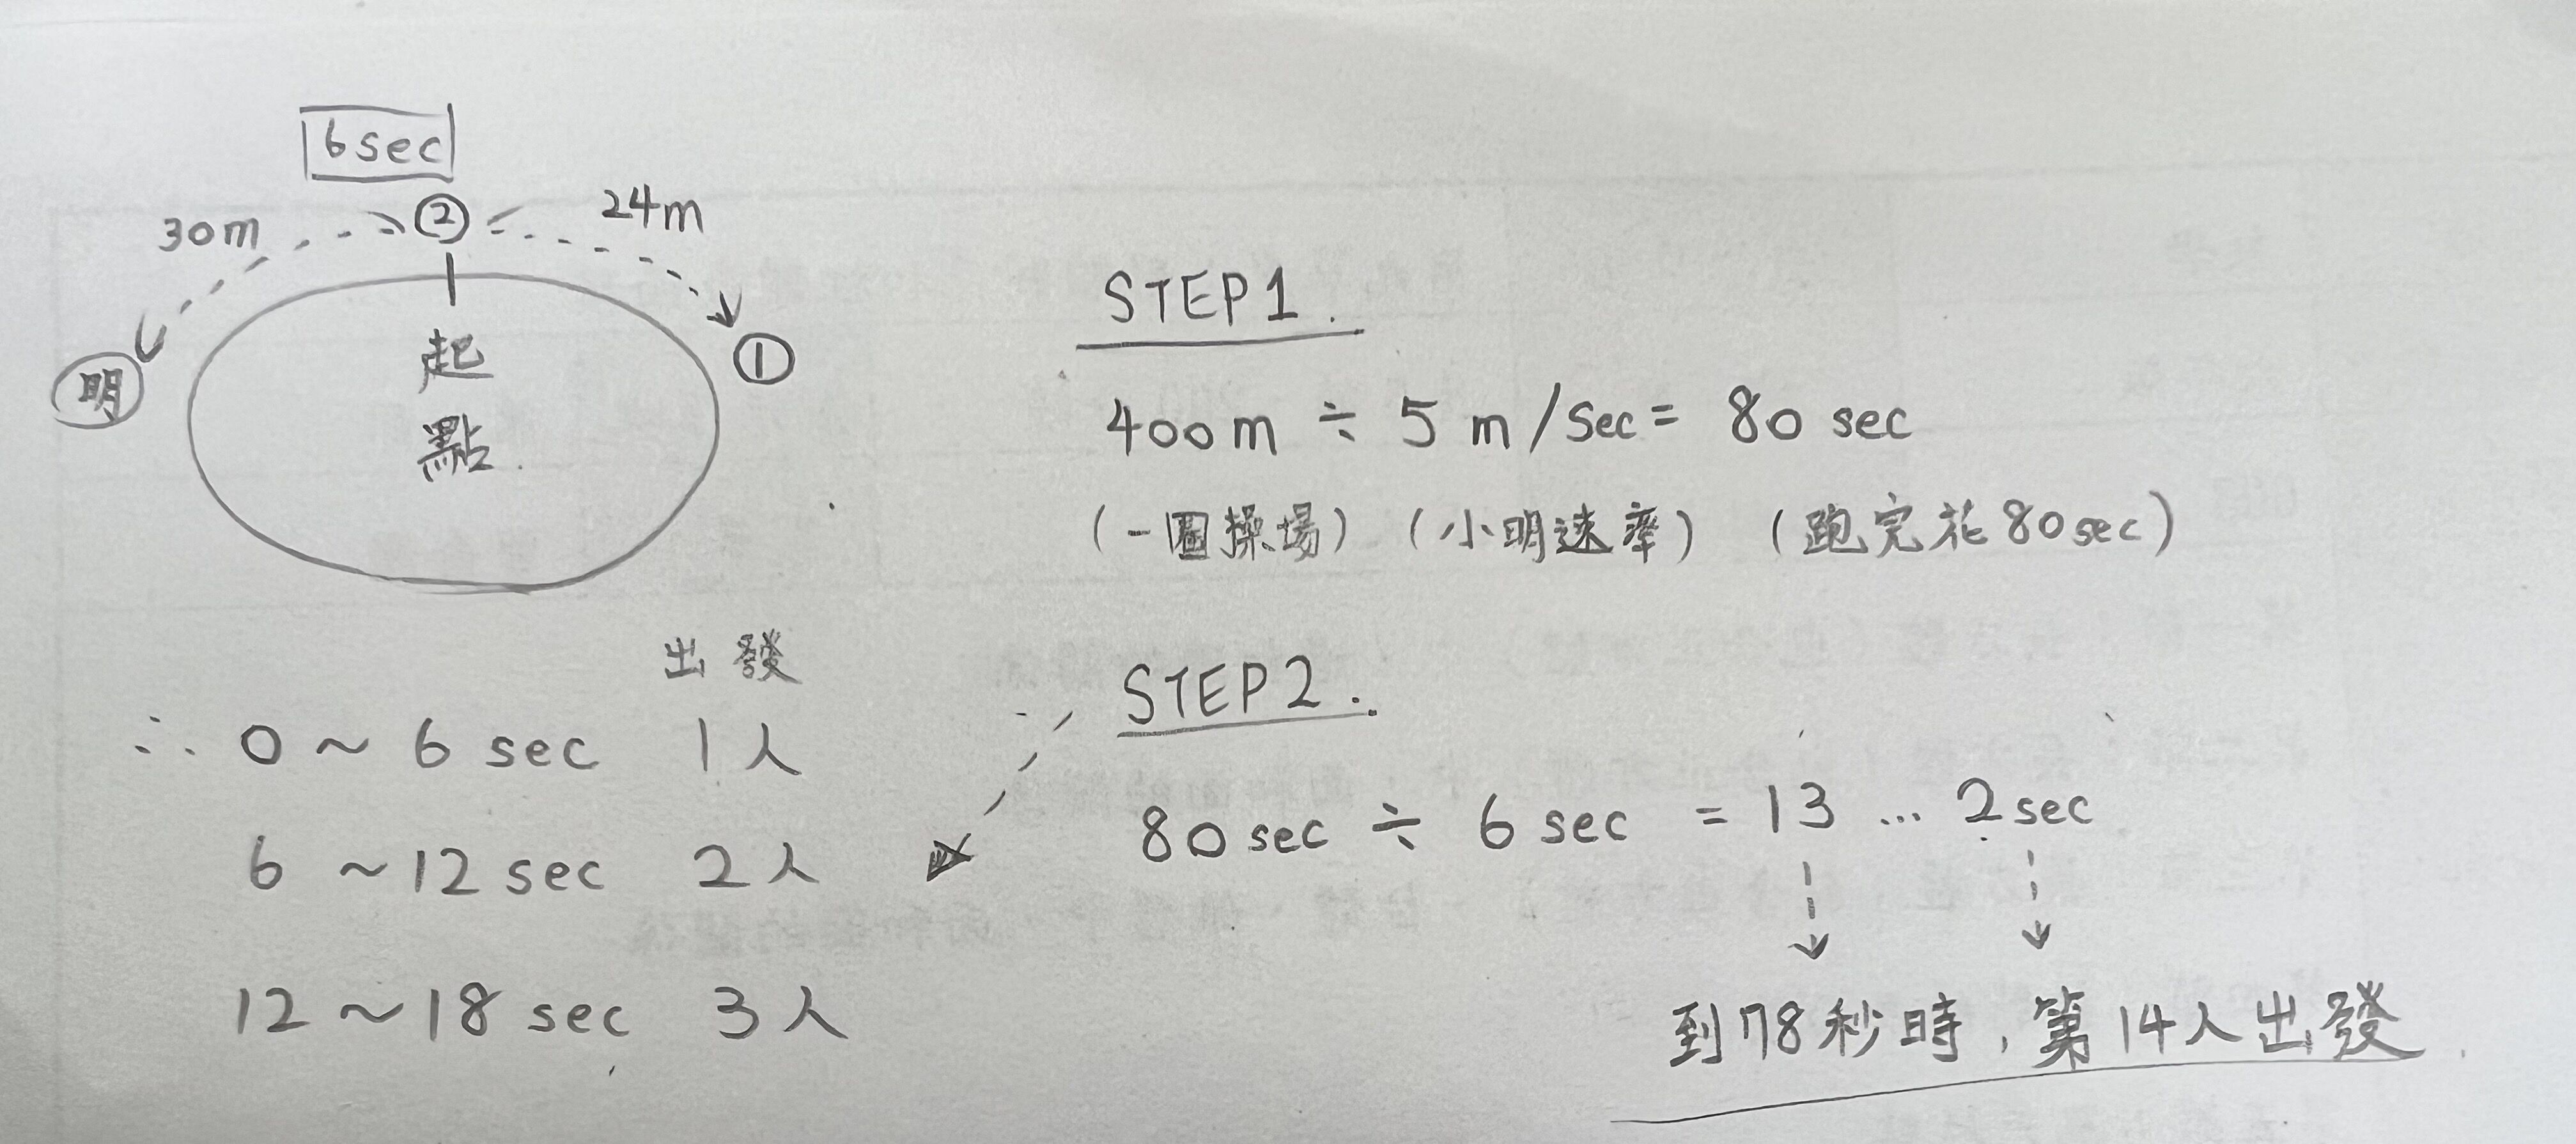 6sec
30m ② 24m
明 ①
起
點.
出發
∴ 0 ~ 6 sec 1人
6 ~ 12 sec 2人
12 ~ 18 sec 3人
STEP1.
400m ÷ 5 m/sec = 80 sec
(一圈操場) (小明速率) (跑完花80sec)
STEP2.
80sec ÷ 6 sec = 13 ... 2sec
到78秒時,第14人出發